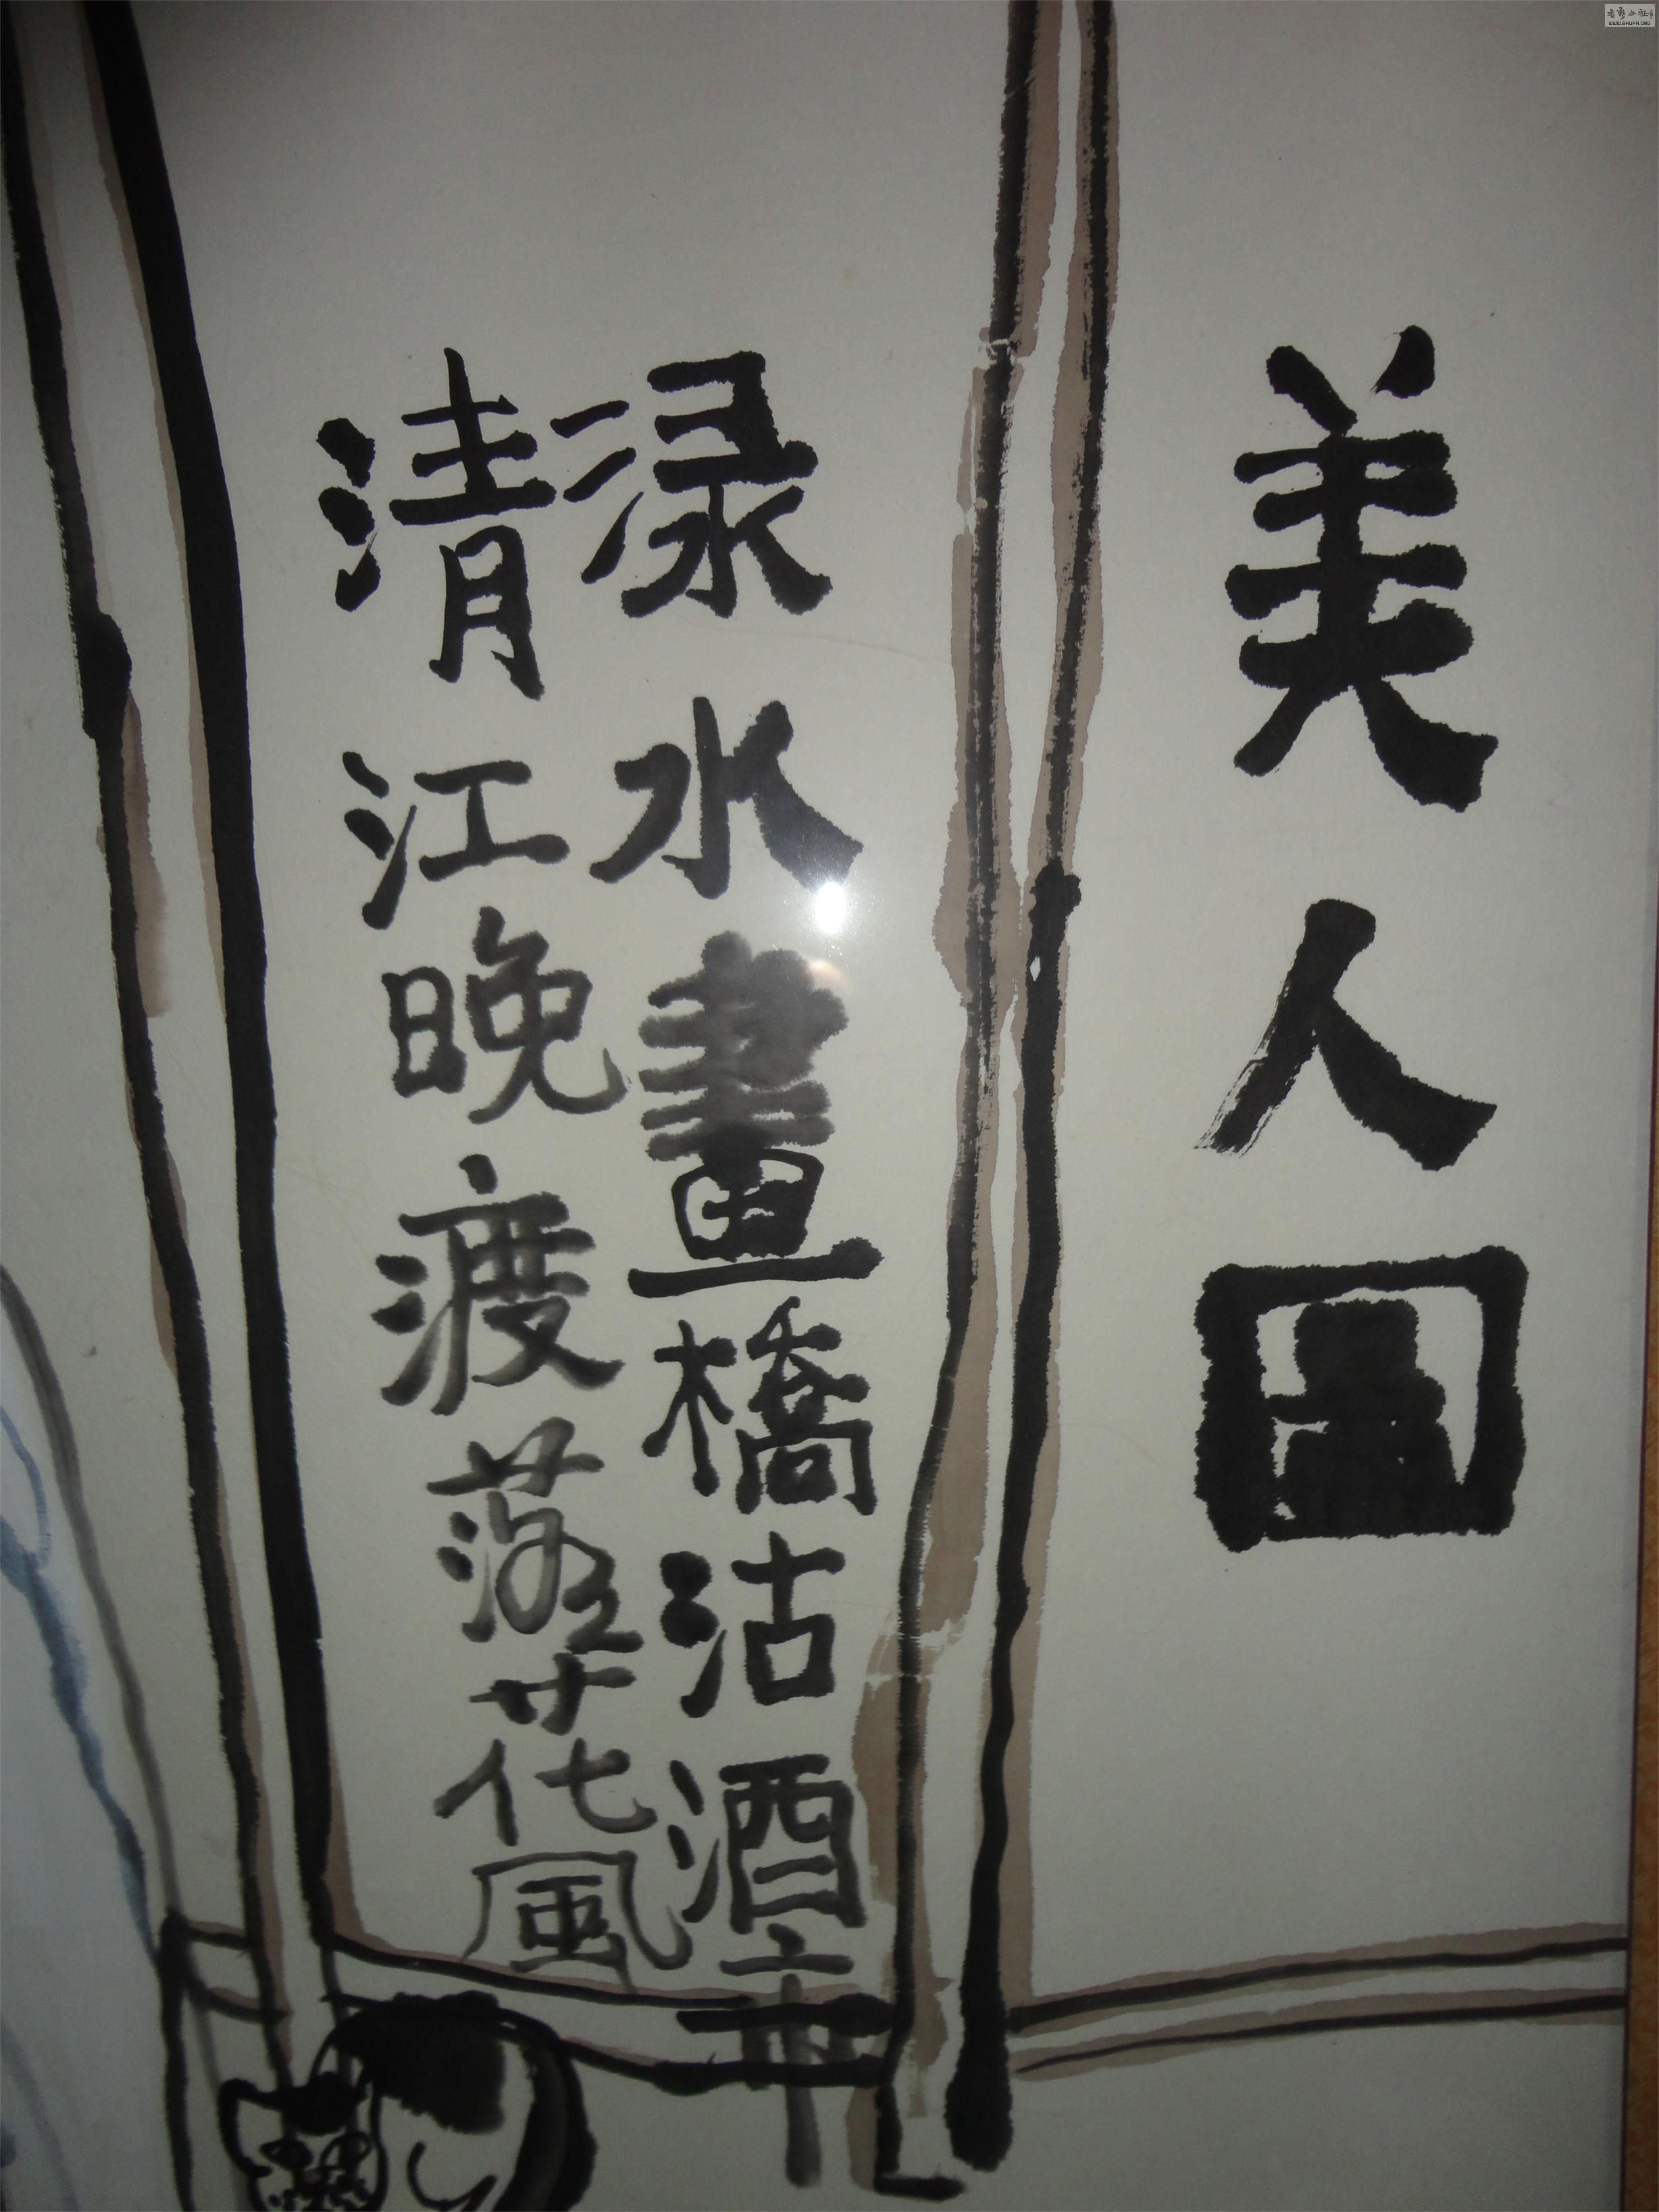 美人圖
渌水畫橋沽酒市
清江晚渡落花風
WWW.SHUFA.ORG